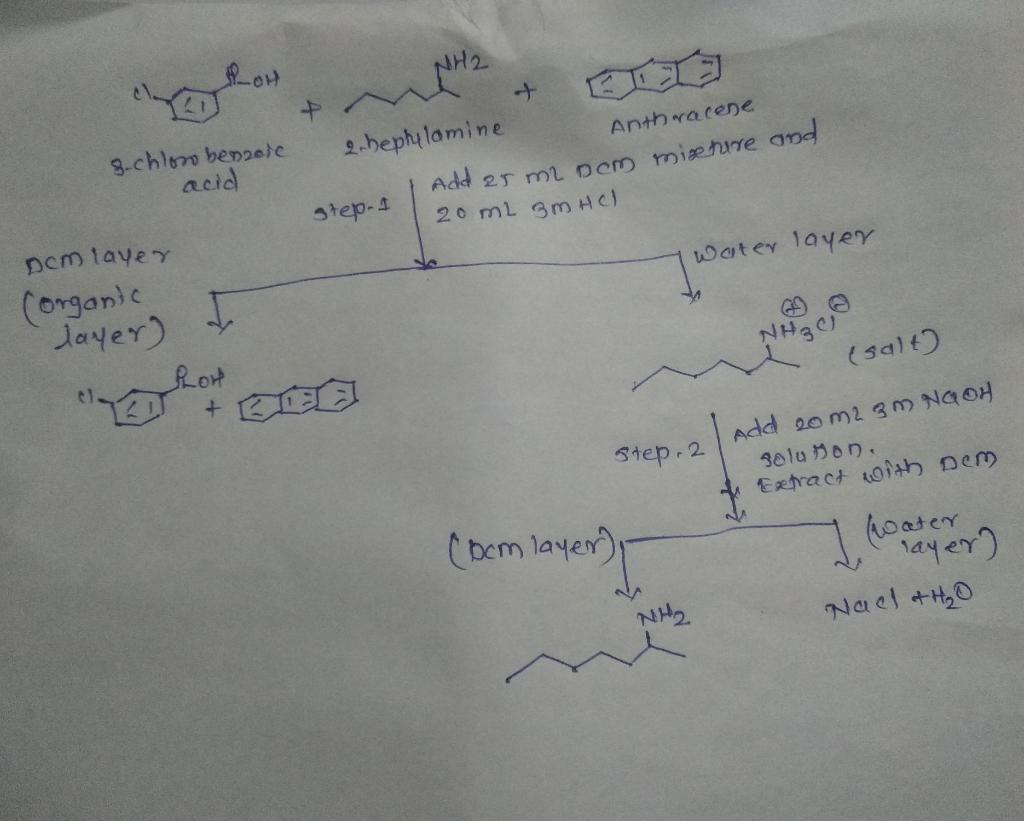 Cl
OH
NH2
+
+
3-chloro benzoic
acid
2-heptylamine
Anthracene
Step-1
Add 25 mL DCM mixture and
20 mL 3m HCl
DCM layer
(organic
layer)
Water layer
Cl
OH
+
⊕ ⊖
NH3Cl
(salt)
Step-2
Add 20 mL 3m NaOH
solution.
Extract with DCM
(DCM layer)
(water
layer)
NH2
NaCl + H2O